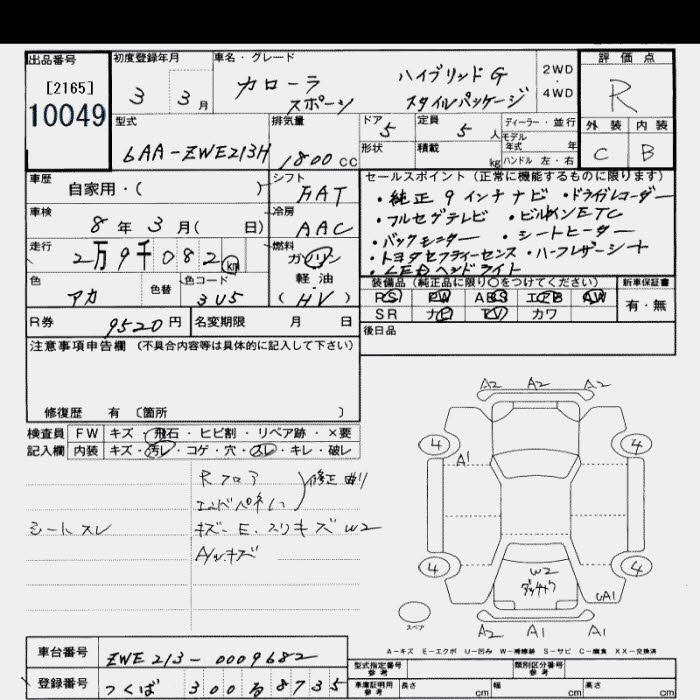 出品番号 初度登録年月 車名・グレード 評価点
[2165] 3 3月 カローラ スポーツ ハイブリッドG スタイルパッケージ 2WD・4WD R
10049
型式 排気量 ドア 5 定員 5人 ディーラー・並行 外装 内装
6AA-ZWE213H 1800cc 形状 積載 kg モデル年式 年 ハンドル 左・右 C B
車歴 自家用・( ) シフト FAT
セールスポイント(正常に機能するものに限ります)
・純正9インチナビ ・ドライブレコーダー
・フルセグテレビ ・ビルトインETC
・バックモニター ・シートヒーター
・トヨタセーフティーセンス ・ハーフレザーシート
・LEDヘッドライト
車検 8年3月( 日) 冷房 AAC
走行 2万9千082km 燃料 ガソリン・軽油・(HV)
色 アカ 色替 色コード 3U5
装備品(純正品に限り○をつけてください) 新車保証書
PS PW ABS エアB AW 有・無
SR ナビ TV カワ
R券 9520円 名変期限 月 日 後日品
注意事項申告欄(不具合内容等は具体的に記入して下さい)
修復歴 有 〔箇所 〕
検査員 FW キズ・飛石・ヒビ割・リペア跡・×要
記入欄 内装 キズ・汚レ・コゲ・穴・スレ・キレ・破レ
Rフロア
エンドパネル 修正曲り
シートスレ キズ・E・スリキズW2
A/Wキズ
A2 A2 A2
4 4
A1
4 4
W2
UA1
A2 A1 A1
スペア
A-キズ E-エクボ U-凹み W-補修跡 S-サビ C-腐食 XX-交換済
車台番号 ZWE213-0009682
登録番号 つくば 300 る 8735
型式指定番号 参考 類別区分番号 参考
車庫証明用 参考 長さ cm 幅 cm 高さ cm